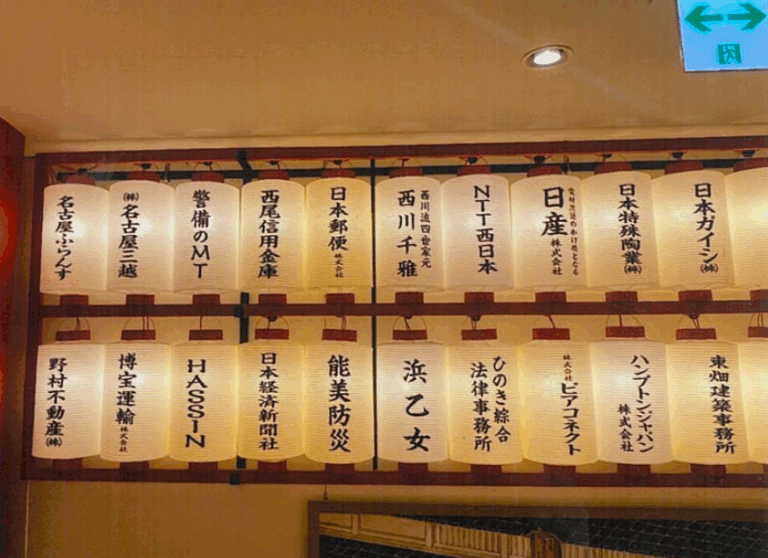 名古屋ふらんす
㈱名古屋三越
警備のMT
西尾信用金庫
日本郵便株式会社
西川流四世家元
西川千雅
NTT西日本
日産株式会社
日本特殊陶業㈱
日本ガイシ㈱
野村不動産㈱
博宝運輸株式会社
HASSIN
日本経済新聞社
能美防災
浜乙女
ひのき綜合
法律事務所
株式会社ピアコネクト
ハンプトンジャパン
株式会社
東畑建築事務所